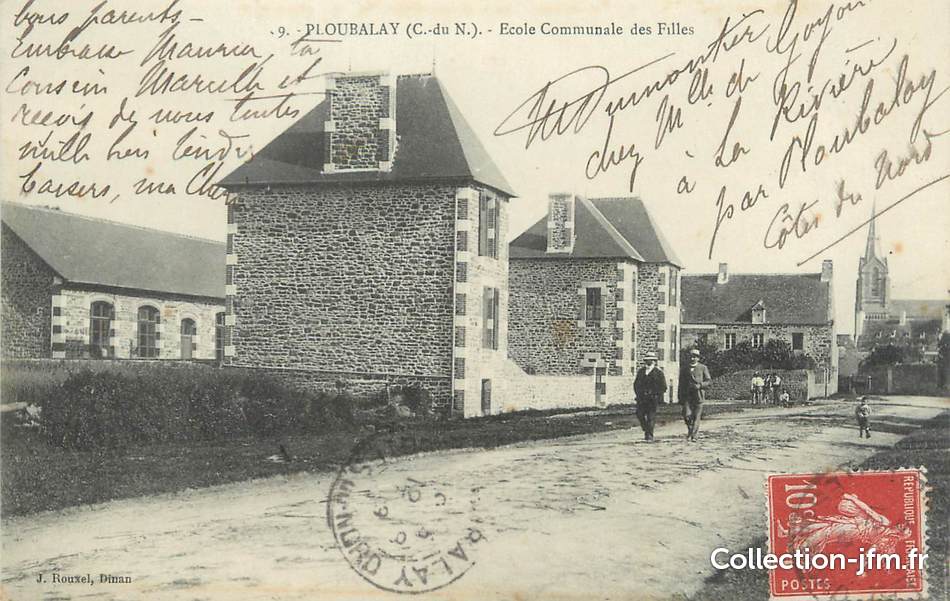 9. - PLOUBALAY (C.-du N.). - Ecole Communale des Filles
bons parents -
Embrasse Maurice, ton
Cousin Marcelle et
reçois de nous toutes
mille bien tendres
baisers, ma
Dumontier
chez Mlle de Goyon
à La Rivière
par Ploubalay
Côtes du Nord
10c
REPUBLIQUE FRANÇAISE
POSTES
J. Rouxel, Dinan
Collection-jfm.fr